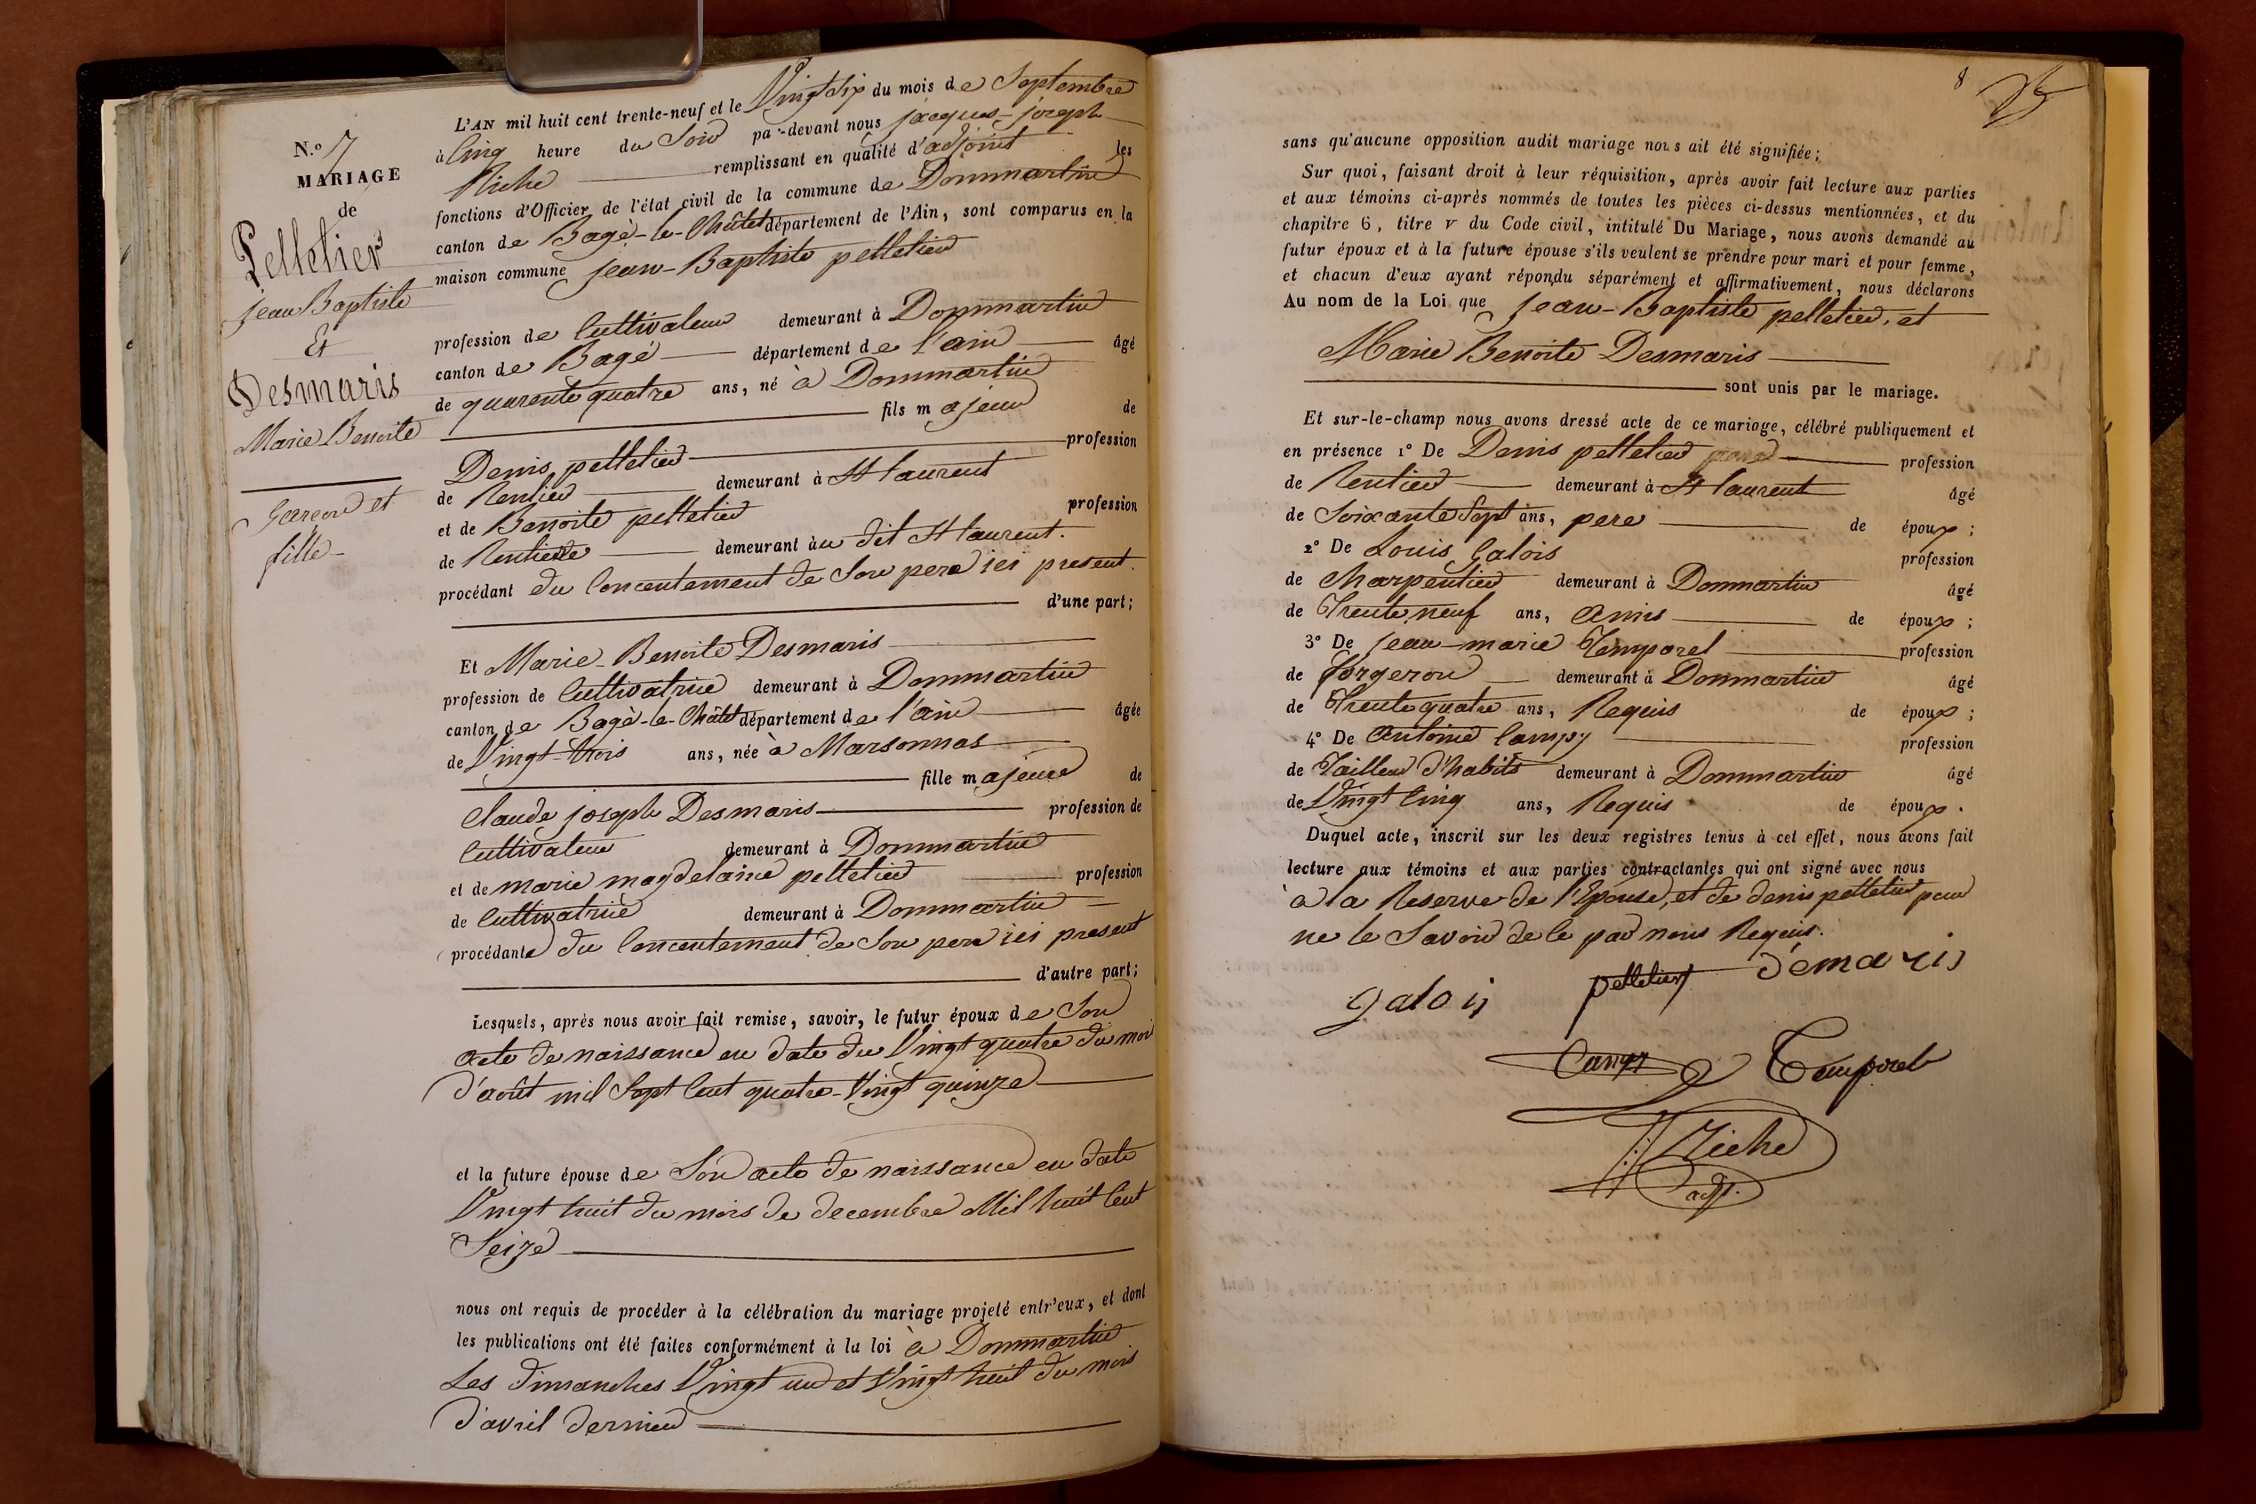 N.o 7
MARIAGE
de
Pelletier
jean Baptiste
Et
Desmaris
Marie Benoite
Garcon et
fille
L'AN mil huit cent trente-neuf et le Vingt Six du mois de Septembre
à Cinq heure du Soir par-devant nous jacques-joseph
Riche remplissant en qualité d'adjoint les
fonctions d'Officier de l'état civil de la commune de Dommartin
canton de Bagé-le-Châtel département de l'Ain, sont comparus en la
maison commune jean-Baptiste pelletier
profession de Cultivateur demeurant à Dommartin
canton de Bagé département de l'ain âgé
de quarente quatre ans, né à Dommartin
fils majeur de
Denis pelletier profession
de Rentier demeurant à St laurent
et de Benoite pelletier profession
de Rentiere demeurant au dit St laurent.
procédant du Concentement de Son pere ici present.
d'une part;
Et Marie-Benoite Desmaris
profession de Cultivatrice demeurant à Dommartin
canton de Bagé-le-Châtel département de l'ain âgée
de Vingt-trois ans, née à Marsonnas
fille majeure de
Claude joseph Desmaris profession de
Cultivateur demeurant à Dommartin
et de marie magdelaine pelletier profession
de Cultivatrice demeurant à Dommartin
procédante du Concentement de Son pere ici present
d'autre part;
Lesquels, après nous avoir fait remise, savoir, le futur époux de Son
acte de naissance en date du Vingt quatre du moi
d'août mil Sept Cent quatre-Vingt quinze
et la future épouse de Son acte de naissance en date
Vingt huit du mois de decembre Mil huit Cent
Seize
nous ont requis de procéder à la célébration du mariage projeté entr'eux, et dont
les publications ont été faites conformément à la loi à Dommartin
Les dimanches Vingt un et Vingt huit du mois
d'avril dernier
8
sans qu'aucune opposition audit mariage nous ait été signifiée;
Sur quoi, faisant droit à leur réquisition, après avoir fait lecture aux parties
et aux témoins ci-après nommés de toutes les pièces ci-dessus mentionnées, et du
chapitre 6, titre v du Code civil, intitulé Du Mariage, nous avons demandé au
futur époux et à la future épouse s'ils veulent se prendre pour mari et pour femme,
et chacun d'eux ayant répondu séparément et affirmativement, nous déclarons
Au nom de la Loi que jean-Baptiste pelletier, et
Marie Benoite Desmaris
sont unis par le mariage.
Et sur-le-champ nous avons dressé acte de ce mariage, célébré publiquement et
en présence 1o De Denis pelletier profession
de Rentier demeurant à St laurent âgé
de Soixante Sept ans, pere de époux;
2o De Louis Galois profession
de Charpentier demeurant à Dommartin âgé
de Trente neuf ans, Amis de époux;
3o De jean-marie Temporel profession
de forgeron demeurant à Dommartin âgé
de Trente quatre ans, Requis de époux;
4o De Antoine Campy profession
de Tailleur d'habits demeurant à Dommartin âgé
de Vingt Cinq ans, Requis de époux.
Duquel acte, inscrit sur les deux registres tenus à cet effet, nous avons fait
lecture aux témoins et aux parties contractantes qui ont signé avec nous
à la Reserve de l'Epouse, et de denis pelletier pour
ne le Savoir de ce par nous Requis.
galois pelletier démaris
Campy Temporel
Riche
adjt.